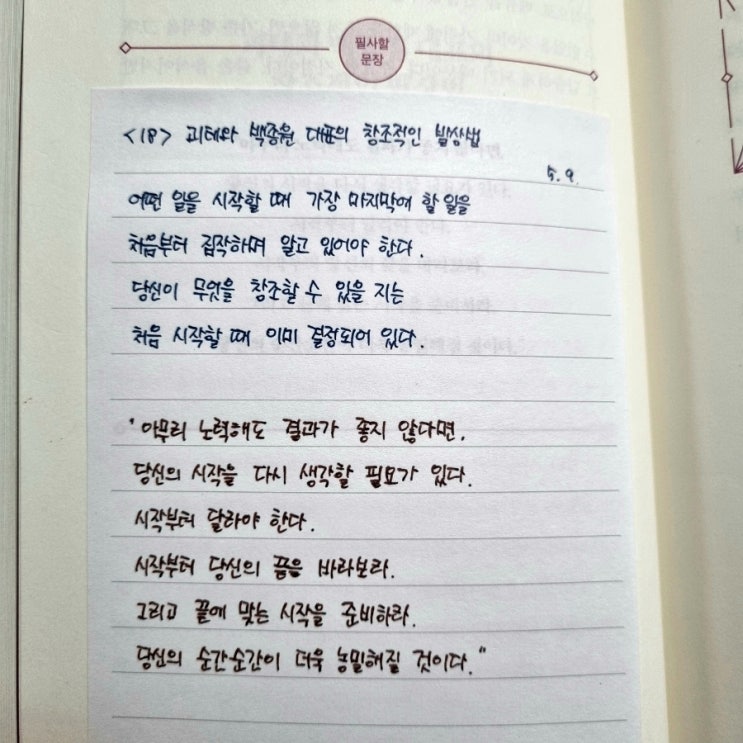 필사할
문장
<18> 괴테와 백종원 대표의 창조적인 발상법
5.9.
어떤 일을 시작할 때 가장 마지막에 할 일을
처음부터 짐작하며 알고 있어야 한다.
당신이 무엇을 창조할 수 있을 지는
처음 시작할 때 이미 결정되어 있다.
"아무리 노력해도 결과가 좋지 않다면,
당신의 시작을 다시 생각할 필요가 있다.
시작부터 달라야 한다.
시작부터 당신의 끝을 바라보라.
그리고 끝에 맞는 시작을 준비하라.
당신의 순간순간이 더욱 농밀해질 것이다."